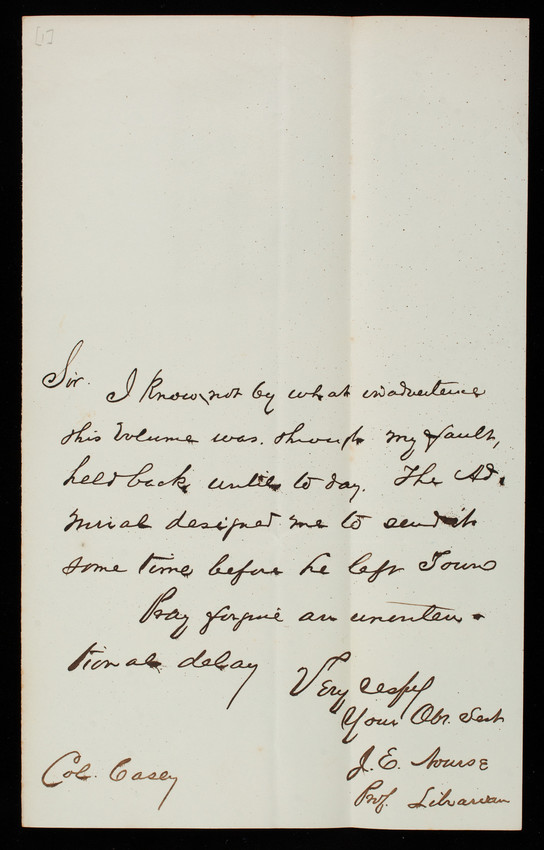 [1]
Sir. I know not by what inadvertence
this Volume was, through my fault,
held back, until to day. The Ad-
miral designed me to send it
some time before he left Town
Pray forgive an uninten-
tional delay
Very respy
Your Obt. Sert
J. E. Nourse
Prof. Librarian
Col. Casey